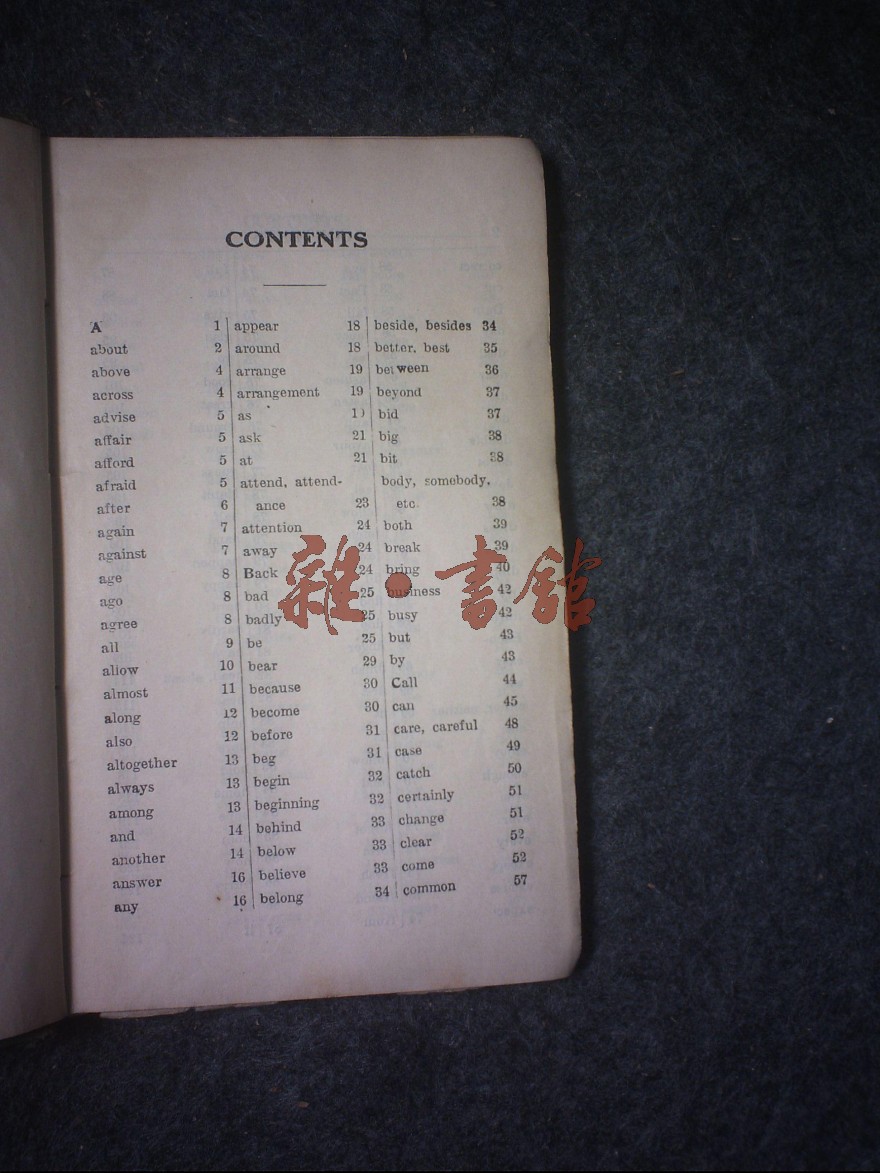 CONTENTS
A 1
about 2
above 4
across 4
advise 5
affair 5
afford 5
afraid 5
after 6
again 7
against 7
age 8
ago 8
agree 8
all 9
allow 10
almost 11
along 12
also 12
altogether 13
always 13
among 13
and 14
another 14
answer 16
any 16
appear 18
around 18
arrange 19
arrangement 19
as
ask 21
at 21
attend, attend-
ance 23
attention 24
away 24
Back 24
bad 25
badly 25
be 25
bear 29
because 30
become 30
before 31
beg 31
begin 32
beginning 32
behind 33
below 33
believe 33
belong 34
beside, besides 34
better, best 35
between 36
beyond 37
bid 37
big 38
bit 38
body, somebody,
etc. 38
both 39
break 39
bring 40
business 42
busy 42
but 43
by 43
Call 44
can 45
care, careful 48
case 49
catch 50
certainly 51
change 51
clear 52
come 52
common 57
雜·書館